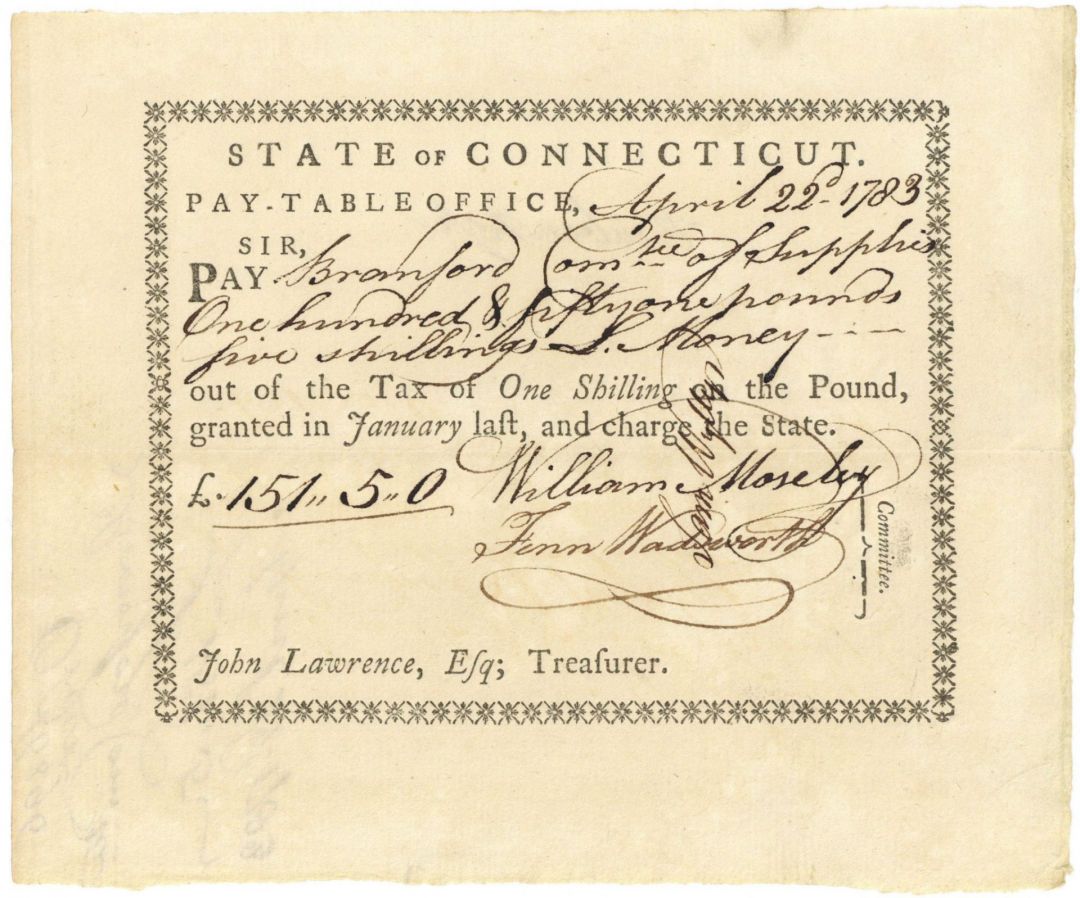 STATE OF CONNECTICUT.
PAY-TABLE OFFICE, April 22d. 1783
SIR,
PAY Branford Comtee of Supplies
One hundred & fiftyone pounds
five shillings L. Money
out of the Tax of One Shilling on the Pound,
granted in January laſt, and charge the State.
£.151,, 5,, 0 William Moseley
Fenn Wadsworth
Committee.
John Lawrence, Eſq; Treaſurer.